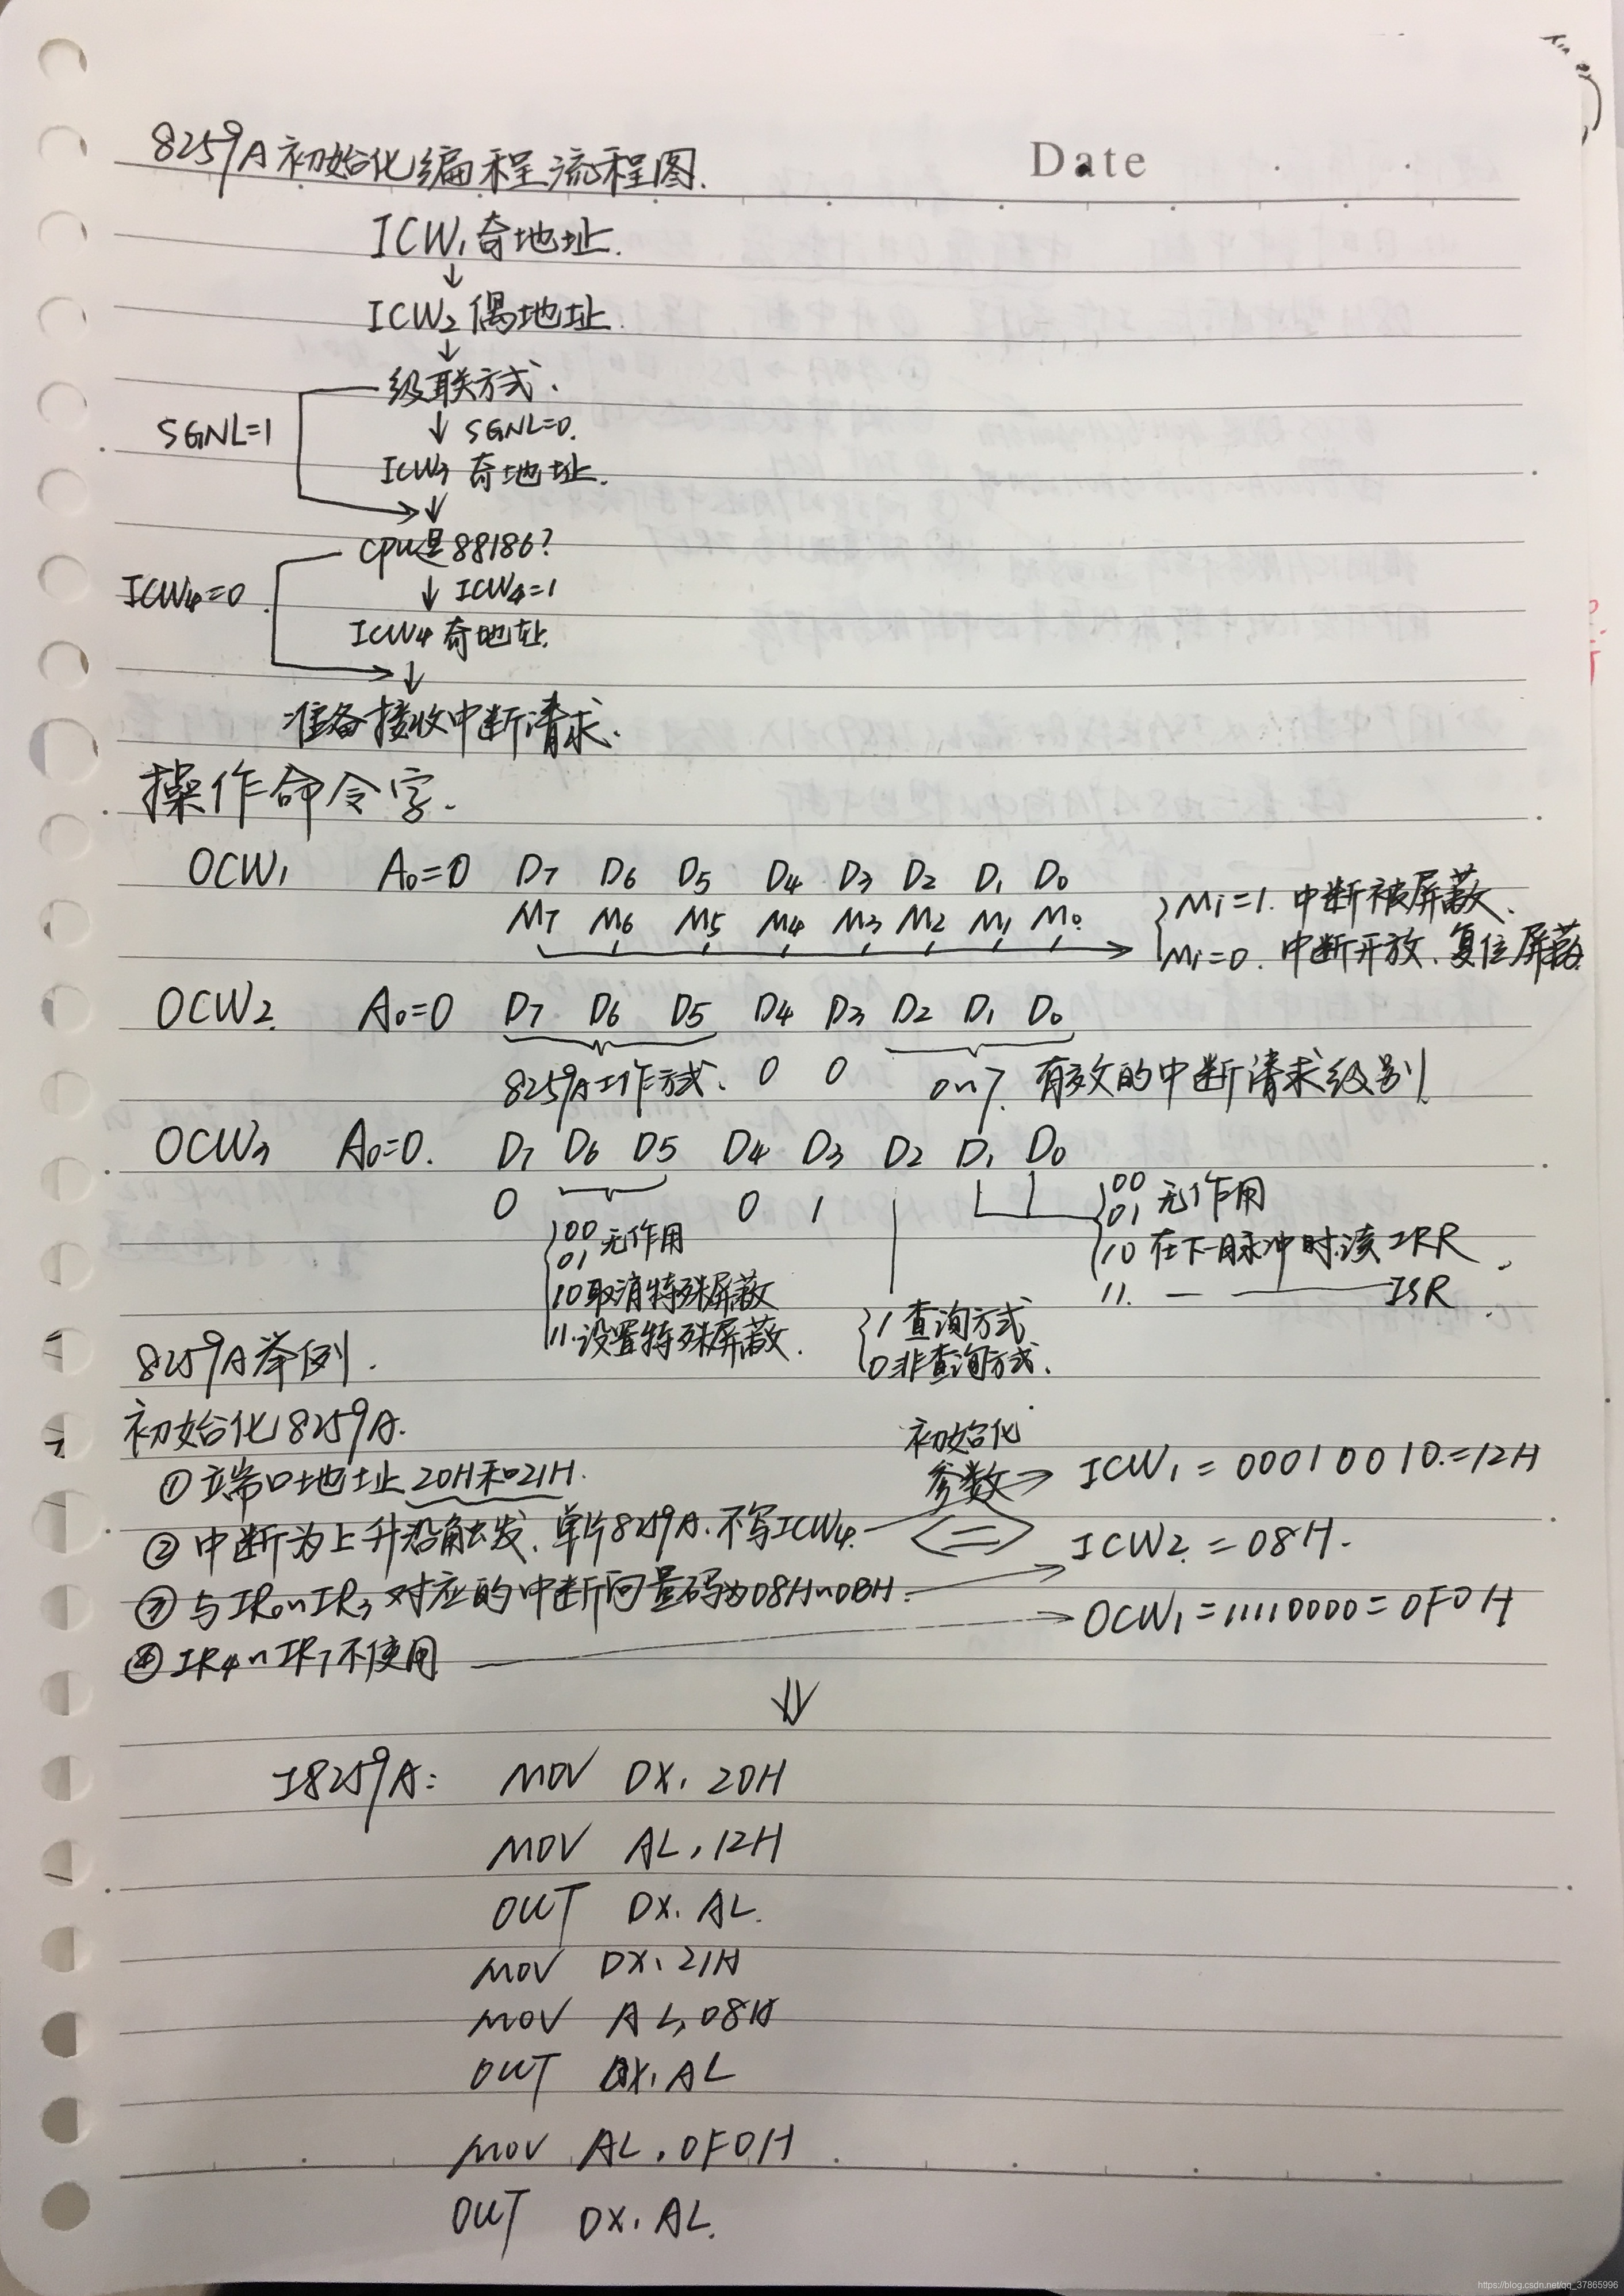 Date
8259A初始化编程流程图.
ICW1 奇地址.
↓
ICW2 偶地址.
↓
级联方式.
SGNL=1
↓ SGNL=0.
ICW3 奇地址.
↓
CPU是88186?
ICW4=0
↓ ICW4=1
ICW4 奇地址.
↓
准备接收中断请求.
操作命令字.
OCW1 A0=0 D7 D6 D5 D4 D3 D2 D1 D0
M7 M6 M5 M4 M3 M2 M1 M0
Mi=1. 中断被屏蔽.
Mi=0. 中断开放、复位屏蔽
OCW2 A0=0 D7 D6 D5 D4 D3 D2 D1 D0
8259A工作方式. 0 0 0~7. 有效的中断请求级别
OCW3 A0=0. D7 D6 D5 D4 D3 D2 D1 D0
0 0 1
00
01 无作用
10 取消特殊屏蔽
11. 设置特殊屏蔽.
1 查询方式
0 非查询方式.
00
01 无作用
10 在下一脉冲时读 IRR
11. — —— ISR
8259A举例.
初始化8259A.
① 端口地址 20H和21H.
② 中断为上升沿触发. 单片8259A. 不写ICW4.
③ 与IR0~IR3 对应的中断向量码为08H~0BH.
④ IR4~IR7不使用
初始化
参数→ ICW1 = 00010010.=12H
ICW2 = 08H.
OCW1 = 11110000 = 0F0H
I8259A: MOV DX, 20H
MOV AL, 12H
OUT DX, AL.
MOV DX, 21H
MOV AL, 08H
OUT DX, AL
MOV AL, 0F0H
OUT DX, AL.
https://blog.csdn.net/qq_37865996